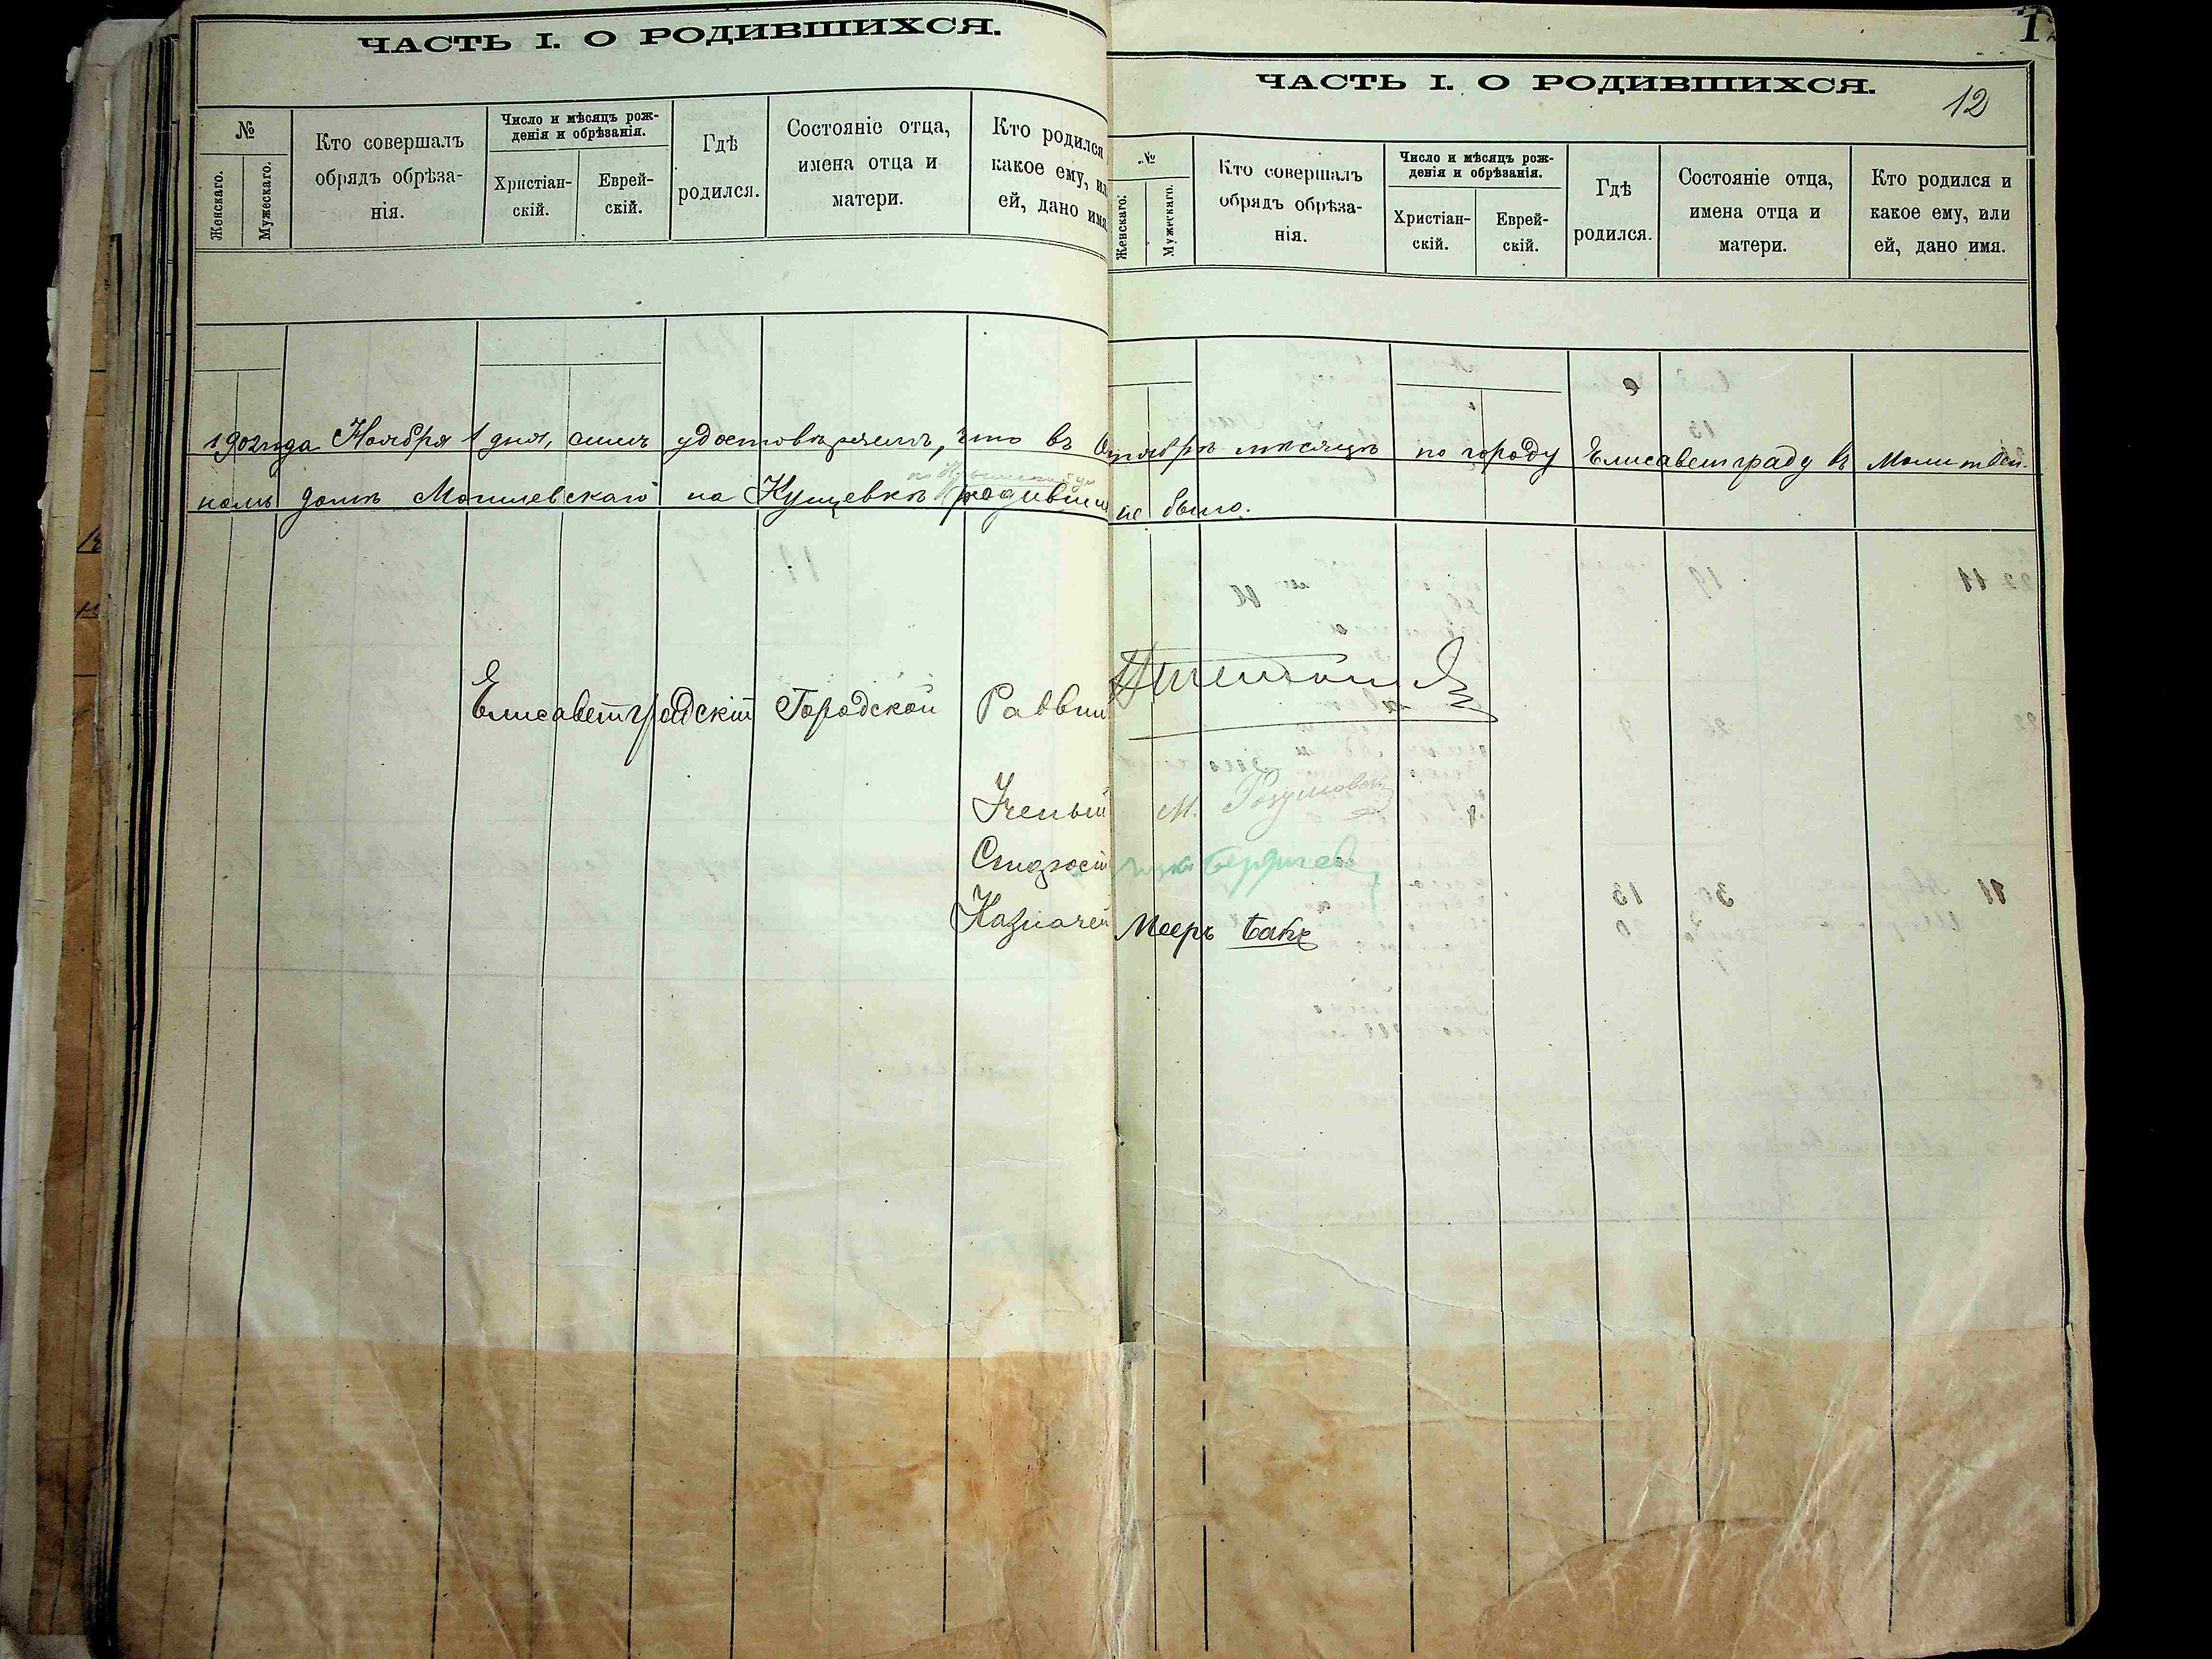 ЧАСТЬ I. О РОДИВШИХСЯ.
№
Женскаго.
Мужескаго.
Кто совершалъ
обрядъ обрѣза-
нія.
Число и мѣсяцъ рож-
денія и обрѣзанія.
Христіан-
скій.
Еврей-
скій.
Гдѣ
родился.
Состояніе отца,
имена отца и
матери.
Кто родился
какое ему, ил
ей, дано имя
ЧАСТЬ I. О РОДИВШИХСЯ.
12
№
Женскаго.
Мужескаго.
Кто совершалъ
обрядъ обрѣза-
нія.
Число и мѣсяцъ рож-
денія и обрѣзанія.
Христіан-
скій.
Еврей-
скій.
Гдѣ
родился.
Состояніе отца,
имена отца и
матери.
Кто родился и
какое ему, или
ей, дано имя.
1902 года Ноября 1 дня, симъ удостовѣряемъ, что въ Октябрѣ мѣсяцѣ по городу Елисаветграду въ Молитвен-
номъ домѣ Могилевскаго на Кущевкѣ родивших не было.
Елисаветградскій Городской Раввин
Ученый М.
Старост
Казначей Мееръ